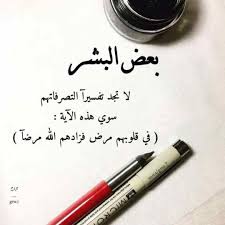 بعض البشر
لا تجد تفسيرآ التصرفاتهم
سوي هذه الآية :
( في قلوبهم مرض فزادهم الله مرضآ )